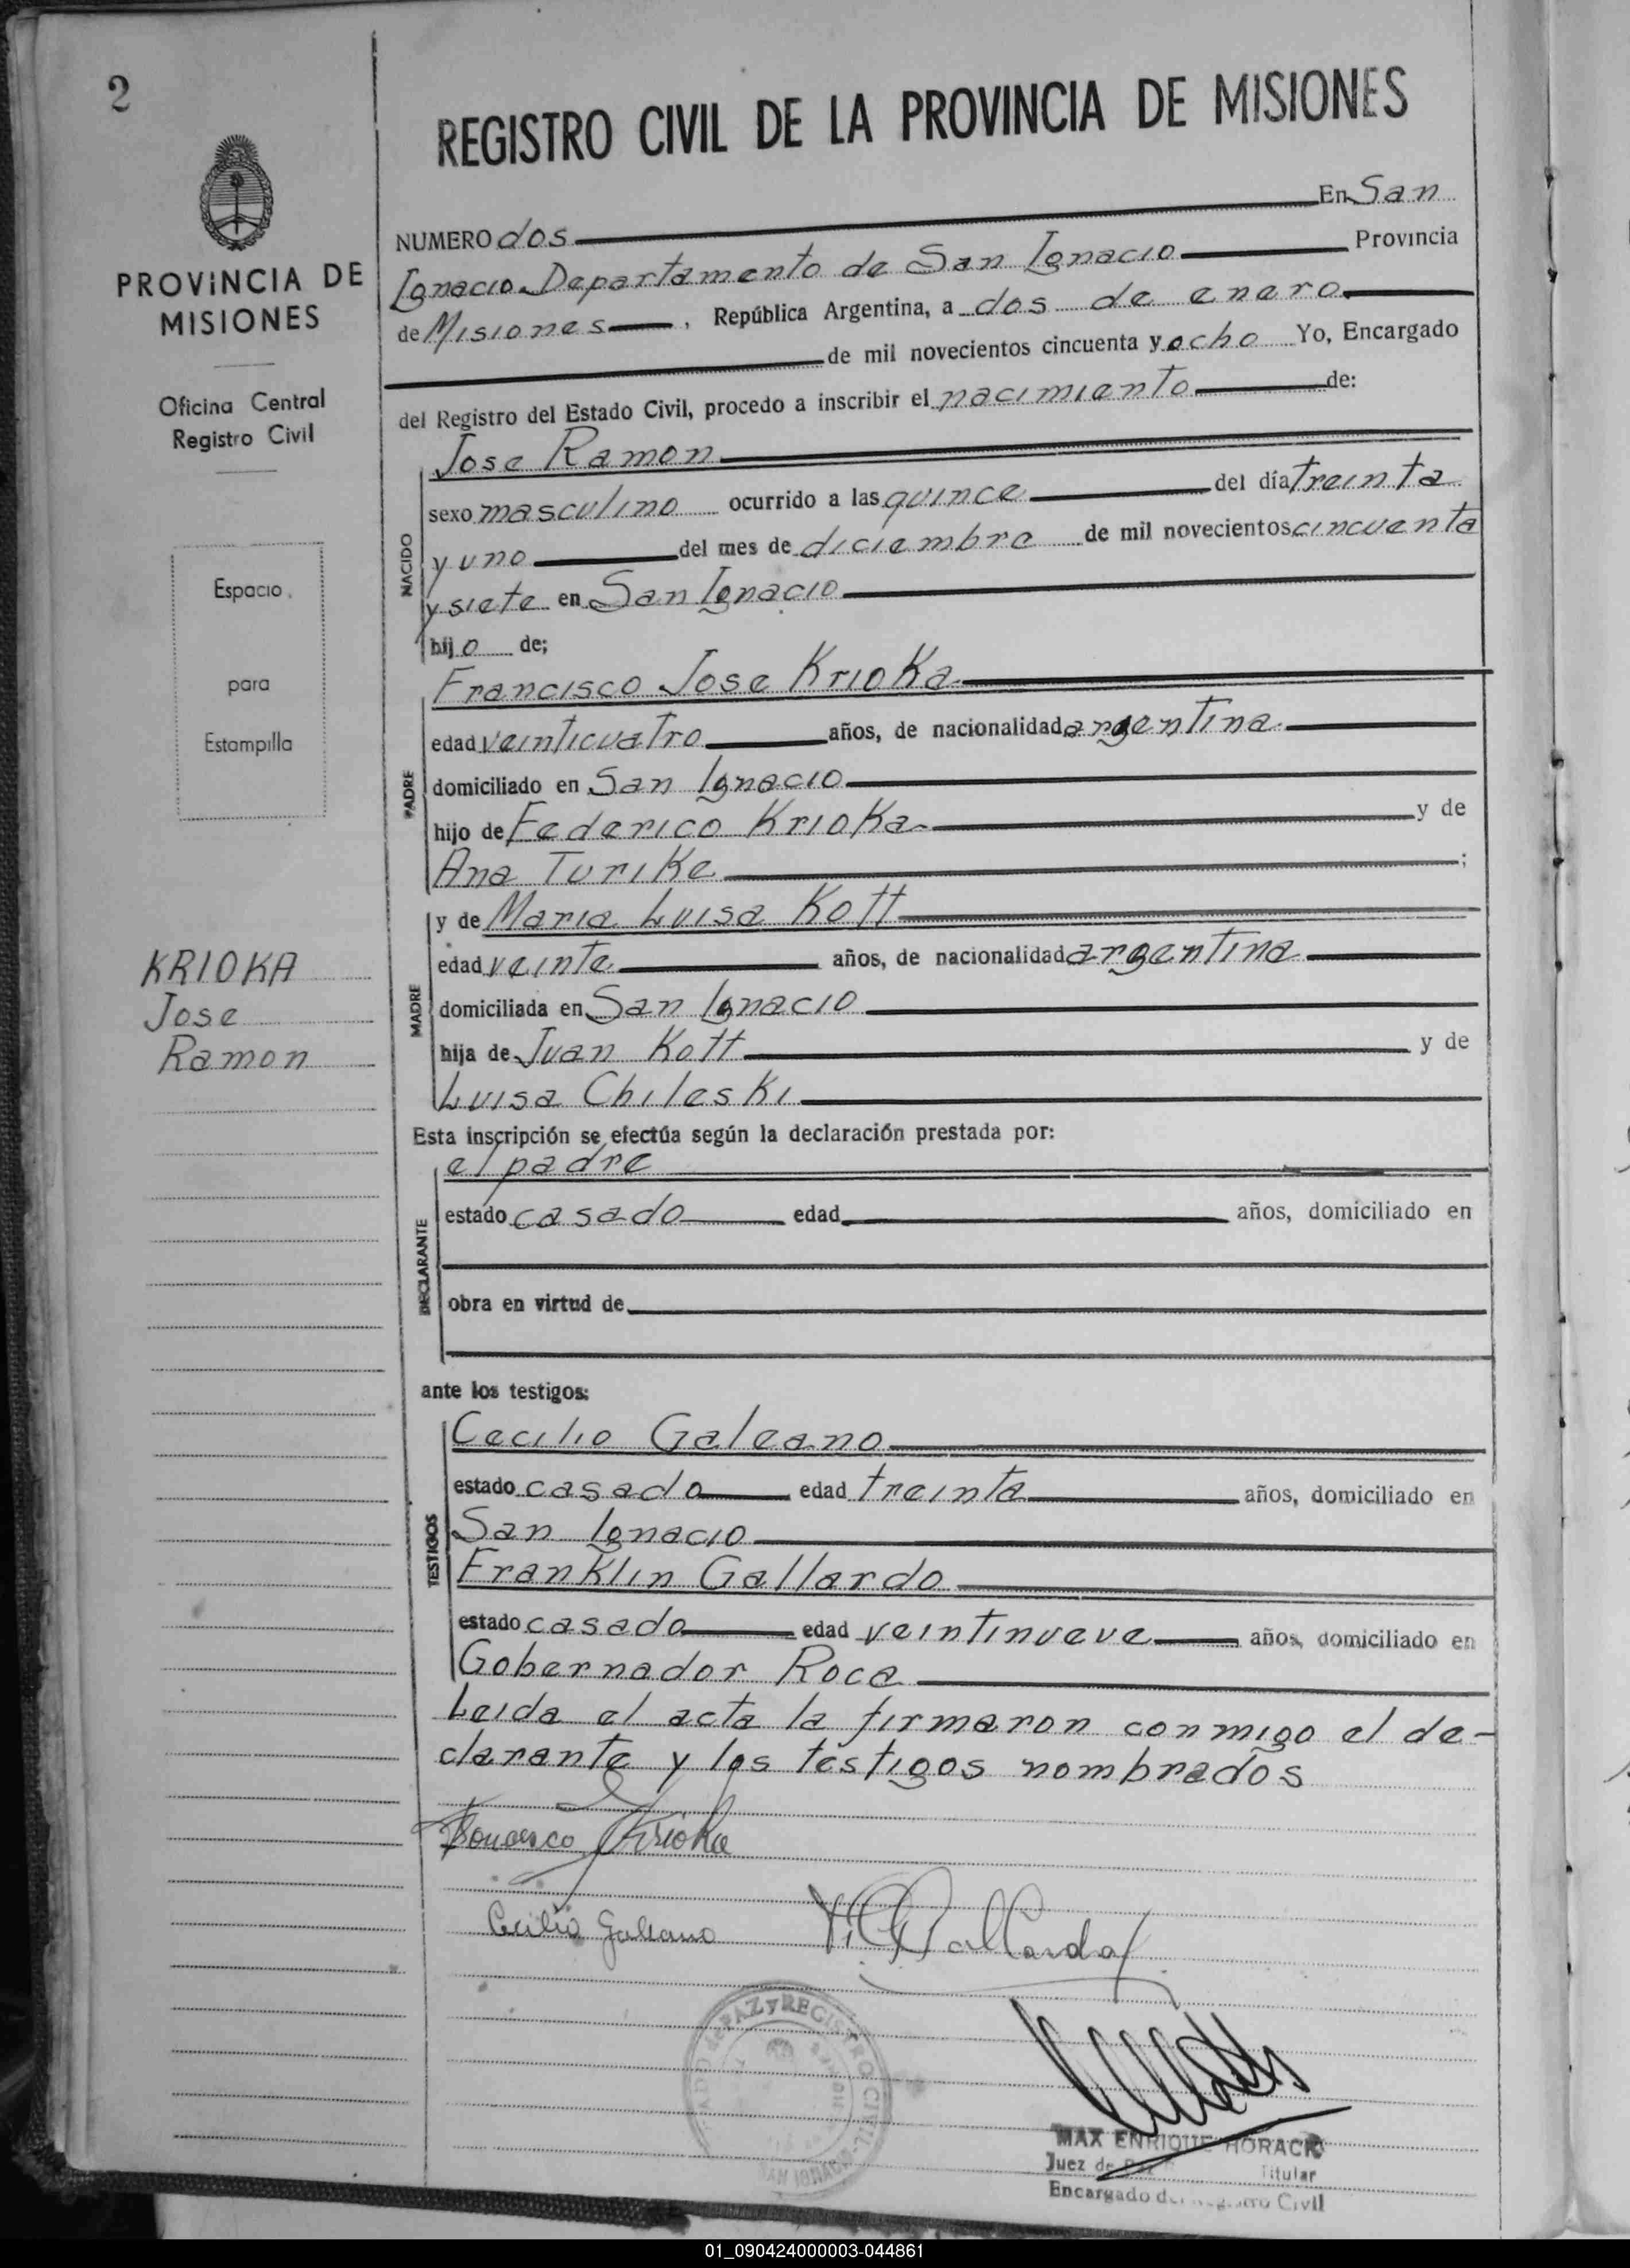 2
REGISTRO CIVIL DE LA PROVINCIA DE MISIONES
PROVINCIA DE
MISIONES
Oficina Central
Registro Civil
Espacio
para
Estampilla
KRIOKA
Jose
Ramon
NUMERO dos En San
Ignacio. Departamento de San Ignacio Provincia
de Misiones, República Argentina, a dos de enero
de mil novecientos cincuenta y ocho Yo, Encargado
del Registro del Estado Civil, procedo a inscribir el nacimiento de:
NACIDO
Jose Ramon
sexo masculino ocurrido a las quince del día treinta
y uno del mes de diciembre de mil novecientos cincuenta
y siete en San Ignacio
hijo de;
PADRE
Francisco Jose Krioka
edad veinticuatro años, de nacionalidad argentina
domiciliado en San Ignacio
hijo de Federico Krioka y de
Ana Turike;
MADRE
y de Maria Luisa Kott
edad veinte años, de nacionalidad argentina
domiciliada en San Ignacio
hija de Juan Kott y de
Luisa Chileski
Esta inscripción se efectúa según la declaración prestada por:
DECLARANTE
el padre
estado casado edad años, domiciliado en
obra en virtud de
ante los testigos:
TESTIGOS
Cecilio Galeano
estado casado edad treinta años, domiciliado en
San Ignacio
Franklin Gallardo
estado casado edad veintinueve años, domiciliado en
Gobernador Roca
Leida el acta la firmaron conmigo el de-
clarante y los testigos nombrados
Francisco J Krioka
Cecilio Galeano Gallardo
PAZ y REGISTRO CIVIL
SAN IGNACIO
MAX ENRIQUE HORACIO
Juez de Paz Titular
Encargado del Registro Civil
01_090424000003-044861